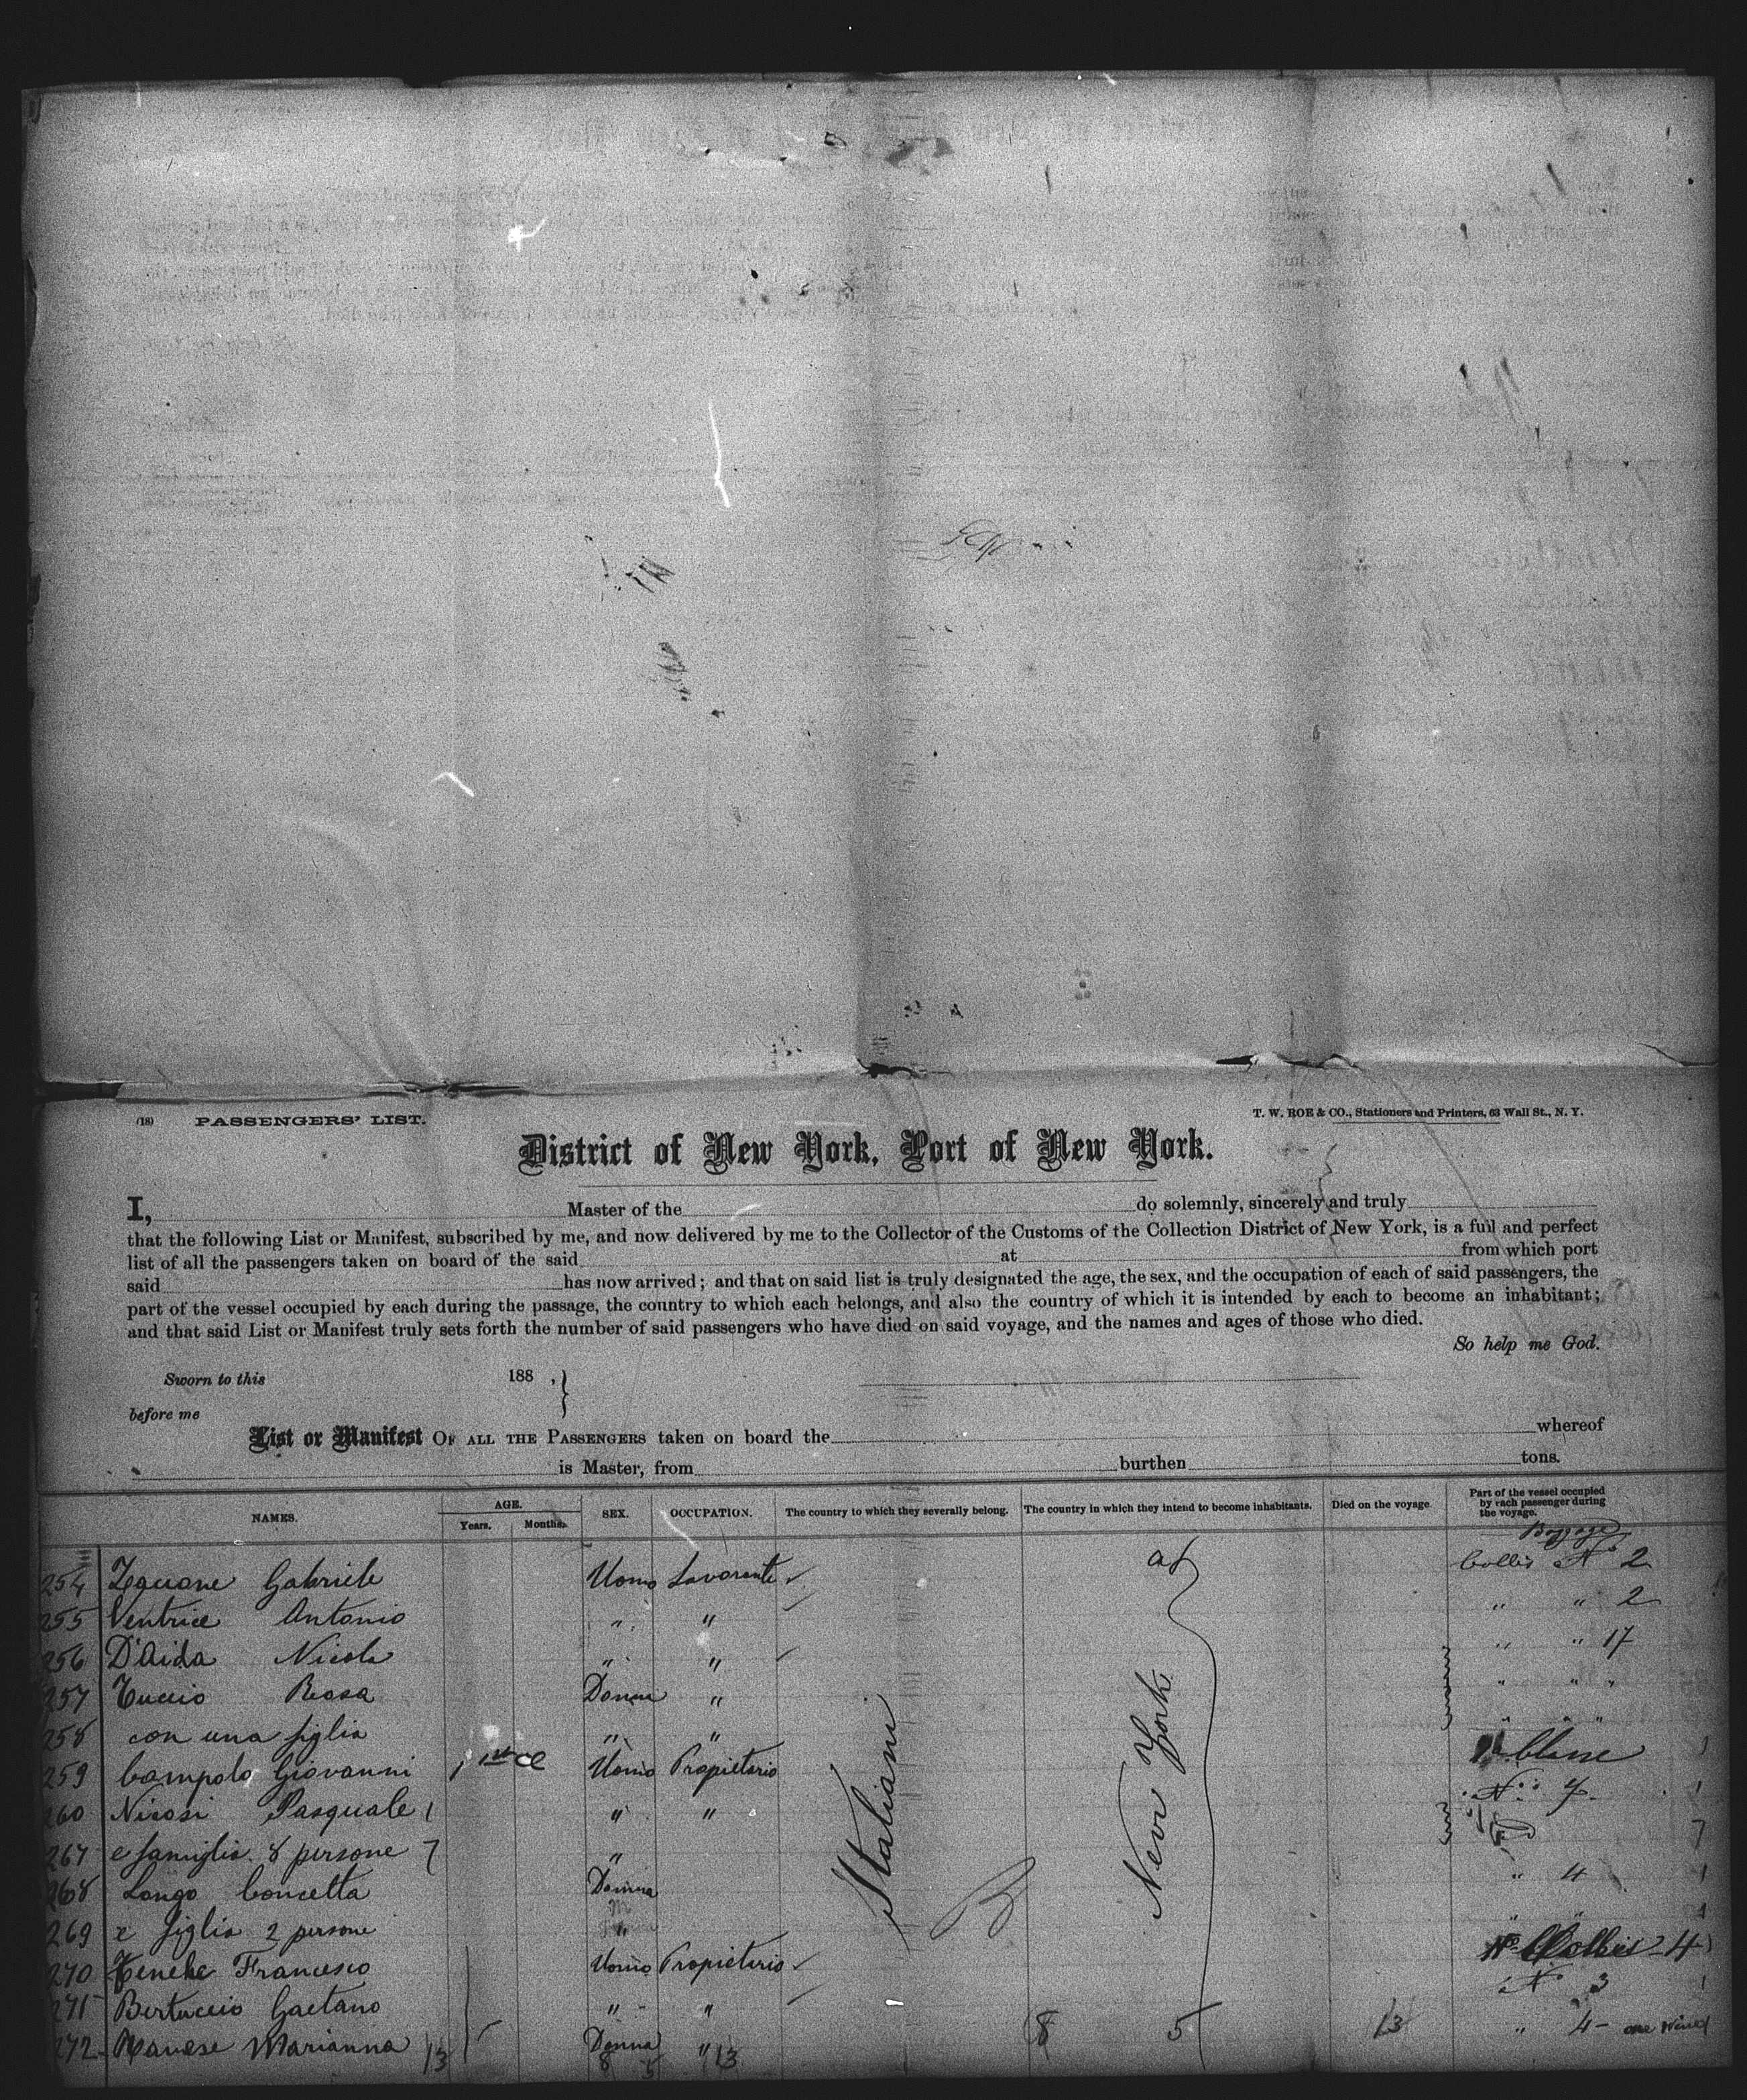 (18) PASSENGERS' LIST.
T. W. ROE & CO., Stationers and Printers, 63 Wall St., N. Y.
District of New York, Port of New York.
I, Master of the do solemnly, sincerely and truly
that the following List or Manifest, subscribed by me, and now delivered by me to the Collector of the Customs of the Collection District of New York, is a full and perfect
list of all the passengers taken on board of the said at from which port
said has now arrived; and that on said list is truly designated the age, the sex, and the occupation of each of said passengers, the
part of the vessel occupied by each during the passage, the country to which each belongs, and also the country of which it is intended by each to become an inhabitant;
and that said List or Manifest truly sets forth the number of said passengers who have died on said voyage, and the names and ages of those who died.
So help me God.
Sworn to this 188 ,}
before me
List or Manifest OF ALL THE PASSENGERS taken on board the whereof
is Master, from burthen tons.
NAMES. AGE. Years. Months. SEX. OCCUPATION. The country to which they severally belong. The country in which they intend to become inhabitants. Died on the voyage. Part of the vessel occupied by each passenger during the voyage.
254 Gabriele Uomo Lavorante Collis N° 2
255 Ventrice Antonio " " " " 2
256 D'Aida Nicola " " " " 17
257 Tuccio Rosa Donna " " " "
258 con una figlia " " " " "
259 Campolo Giovanni 1 1st Cl Uomo Propietario 1
260 Nicosi Pasquale 1 " " N° 7 1
267 e famiglia 8 persone 7 " 7
268 Longo Concetta Donna " 4 1
269 e figlia 2 persone " " " 1
270 Francesco Uomo Propietario Collis 4
271 Bertuccio Gaetano " " N° 3 1
272 Marianna 13 Donna " 8 5 13 " 4
8 5 13
Italiani
New York